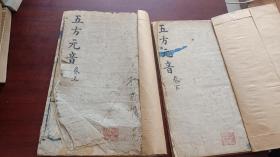 五方元音
卷上
五方元音
卷下